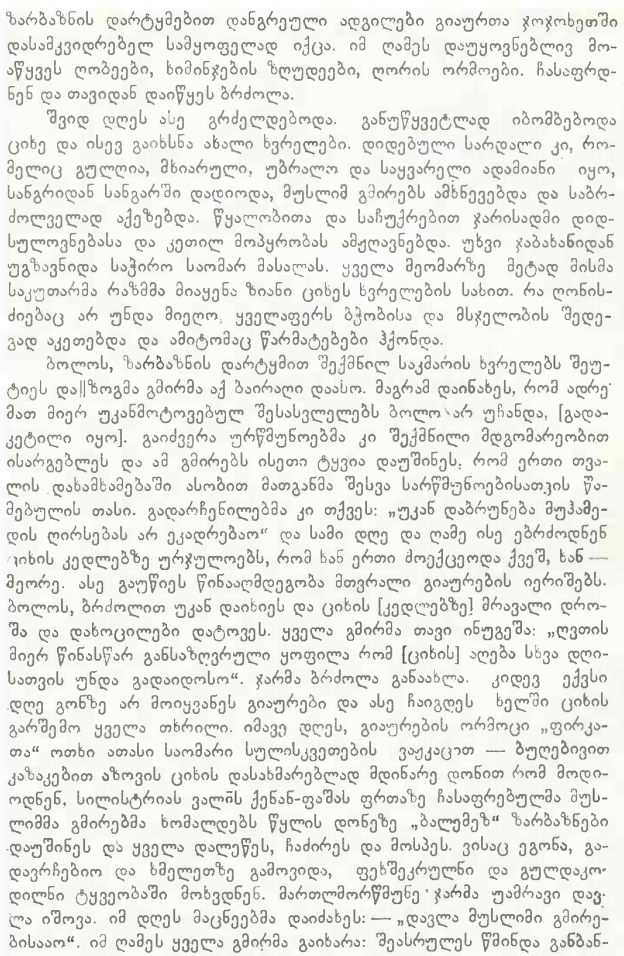 ზარბაზნის დარტყმებით დანგრეული ადგილები გიაურთა ჯოჯოხეთში
დასამკვიდრებელ სამყოფელად იქცა. იმ ღამეს დაუყოვნებლივ მო-
აწყვეს ღობეები, ხიმინჯების ზღუდეები, ღორის ორმოები. ჩასაფრდ-
ნენ და თავიდან დაიწყეს ბრძოლა.
შვიდ დღეს ასე გრძელდებოდა. განუწყვეტლად იბომბებოდა
ციხე და ისევ გაიხსნა ახალი ხვრელები. დიდებული სარდალი კი, რო-
მელიც გულღია, მხიარული, უბრალო და საყვარელი ადამიანი იყო,
სანგრიდან სანგარში დადიოდა, მუსლიმ გმირებს ამხნევებდა და საბრ-
ძოლველად აქეზებდა. წყალობითა და საჩუქრებით ჯარისადმი დიდ-
სულოვნებასა და კეთილ მოპყრობას ამჟღავნებდა. უხვი ჯაბახანიდან
უგზავნიდა საჭირო საომარ მასალას. ყველა მეომარზე მეტად მისმა
საკუთარმა რაზმმა მიაყენა ზიანი ციხეს ხვრელების სახით. რა ღონის-
ძიებაც არ უნდა მიეღო, ყველაფერს ბჭობისა და მსჯელობის შედე-
გად აკეთებდა და ამიტომაც წარმატებები ჰქონდა.
ბოლოს, ზარბაზნის დარტყმით შექმნილ საკმარის ხვრელებს შეუ-
ტიეს და||ზოგმა გმირმა აქ ბაირაღი დაასო. მაგრამ დაინახეს, რომ ადრე
მათ მიერ უკანმოტოვებულ შესასვლელებს ბოლო არ უჩანდა, [გადა-
კეტილი იყო]. გაიძვერა ურწმუნოებმა კი შექმნილი მდგომარეობით
ისარგებლეს და ამ გმირებს ისეთი ტყვია დაუშინეს, რომ ერთი თვა-
ლის დახამხამებაში ასობით მათგანმა შესვა სარწმუნოებისათვის წა-
მებულის თასი. გადარჩენილებმა კი თქვეს: „უკან დაბრუნება მუჰამე-
დის ღირსებას არ ეკადრებაო“ და სამი დღე და ღამე ისე ებრძოდნენ
ციხის კედლებზე ურჯულოებს, რომ ხან ერთი მოექცეოდა ქვეშ, ხან —
მეორე. ასე გაუწიეს წინააღმდეგობა მთვრალი გიაურების იერიშებს.
ბოლოს, ბრძოლით უკან დაიხიეს და ციხის [კედლებზე] მრავალი დრო-
შა და დახოცილები დატოვეს. ყველა გმირმა თავი ინუგეშა: „ღვთის
მიერ წინასწარ განსაზღვრული ყოფილა რომ [ციხის] აღება სხვა დღი-
სათვის უნდა გადაიდოსო“. ჯარმა ბრძოლა განაახლა. კიდევ ექვსი
დღე გონზე არ მოიყვანეს გიაურები და ასე ჩაიგდეს ხელში ციხის
გარშემო ყველა თხრილი. იმავე დღეს, გიაურების ორმოცი „ფირკა-
თა“ ოთხი ათასი საომარი სულისკვეთების ვაჟკაცით — ბუღებივით
კაზაკებით აზოვის ციხის დასახმარებლად მდინარე დონით რომ მოდი-
ოდნენ, სილისტრიას ვალის ქენან-ფაშას ფრთაზე ჩასაფრებულმა მუს-
ლიმმა გმირებმა ხომალდებს წყლის დონეზე „ბალემეზ“ ზარბაზნები
დაუშინეს და ყველა დალეწეს, ჩაძირეს და მოსპეს. ვისაც ეგონა, გა-
დავრჩებიო და ხმელეთზე გამოვიდა, ფეხშეკრულნი და გულდაკო-
დილნი ტყვეობაში მოხვდნენ. მართლმორწმუნე ჯარმა უამრავი დავ-
ლა იშოვა. იმ დღეს მაცნეებმა დაიძახეს: — „დავლა მუსლიმი გმირე-
ბისააო“. იმ ღამეს ყველა გმირმა გაიხარა: შეასრულეს წმინდა განბან-